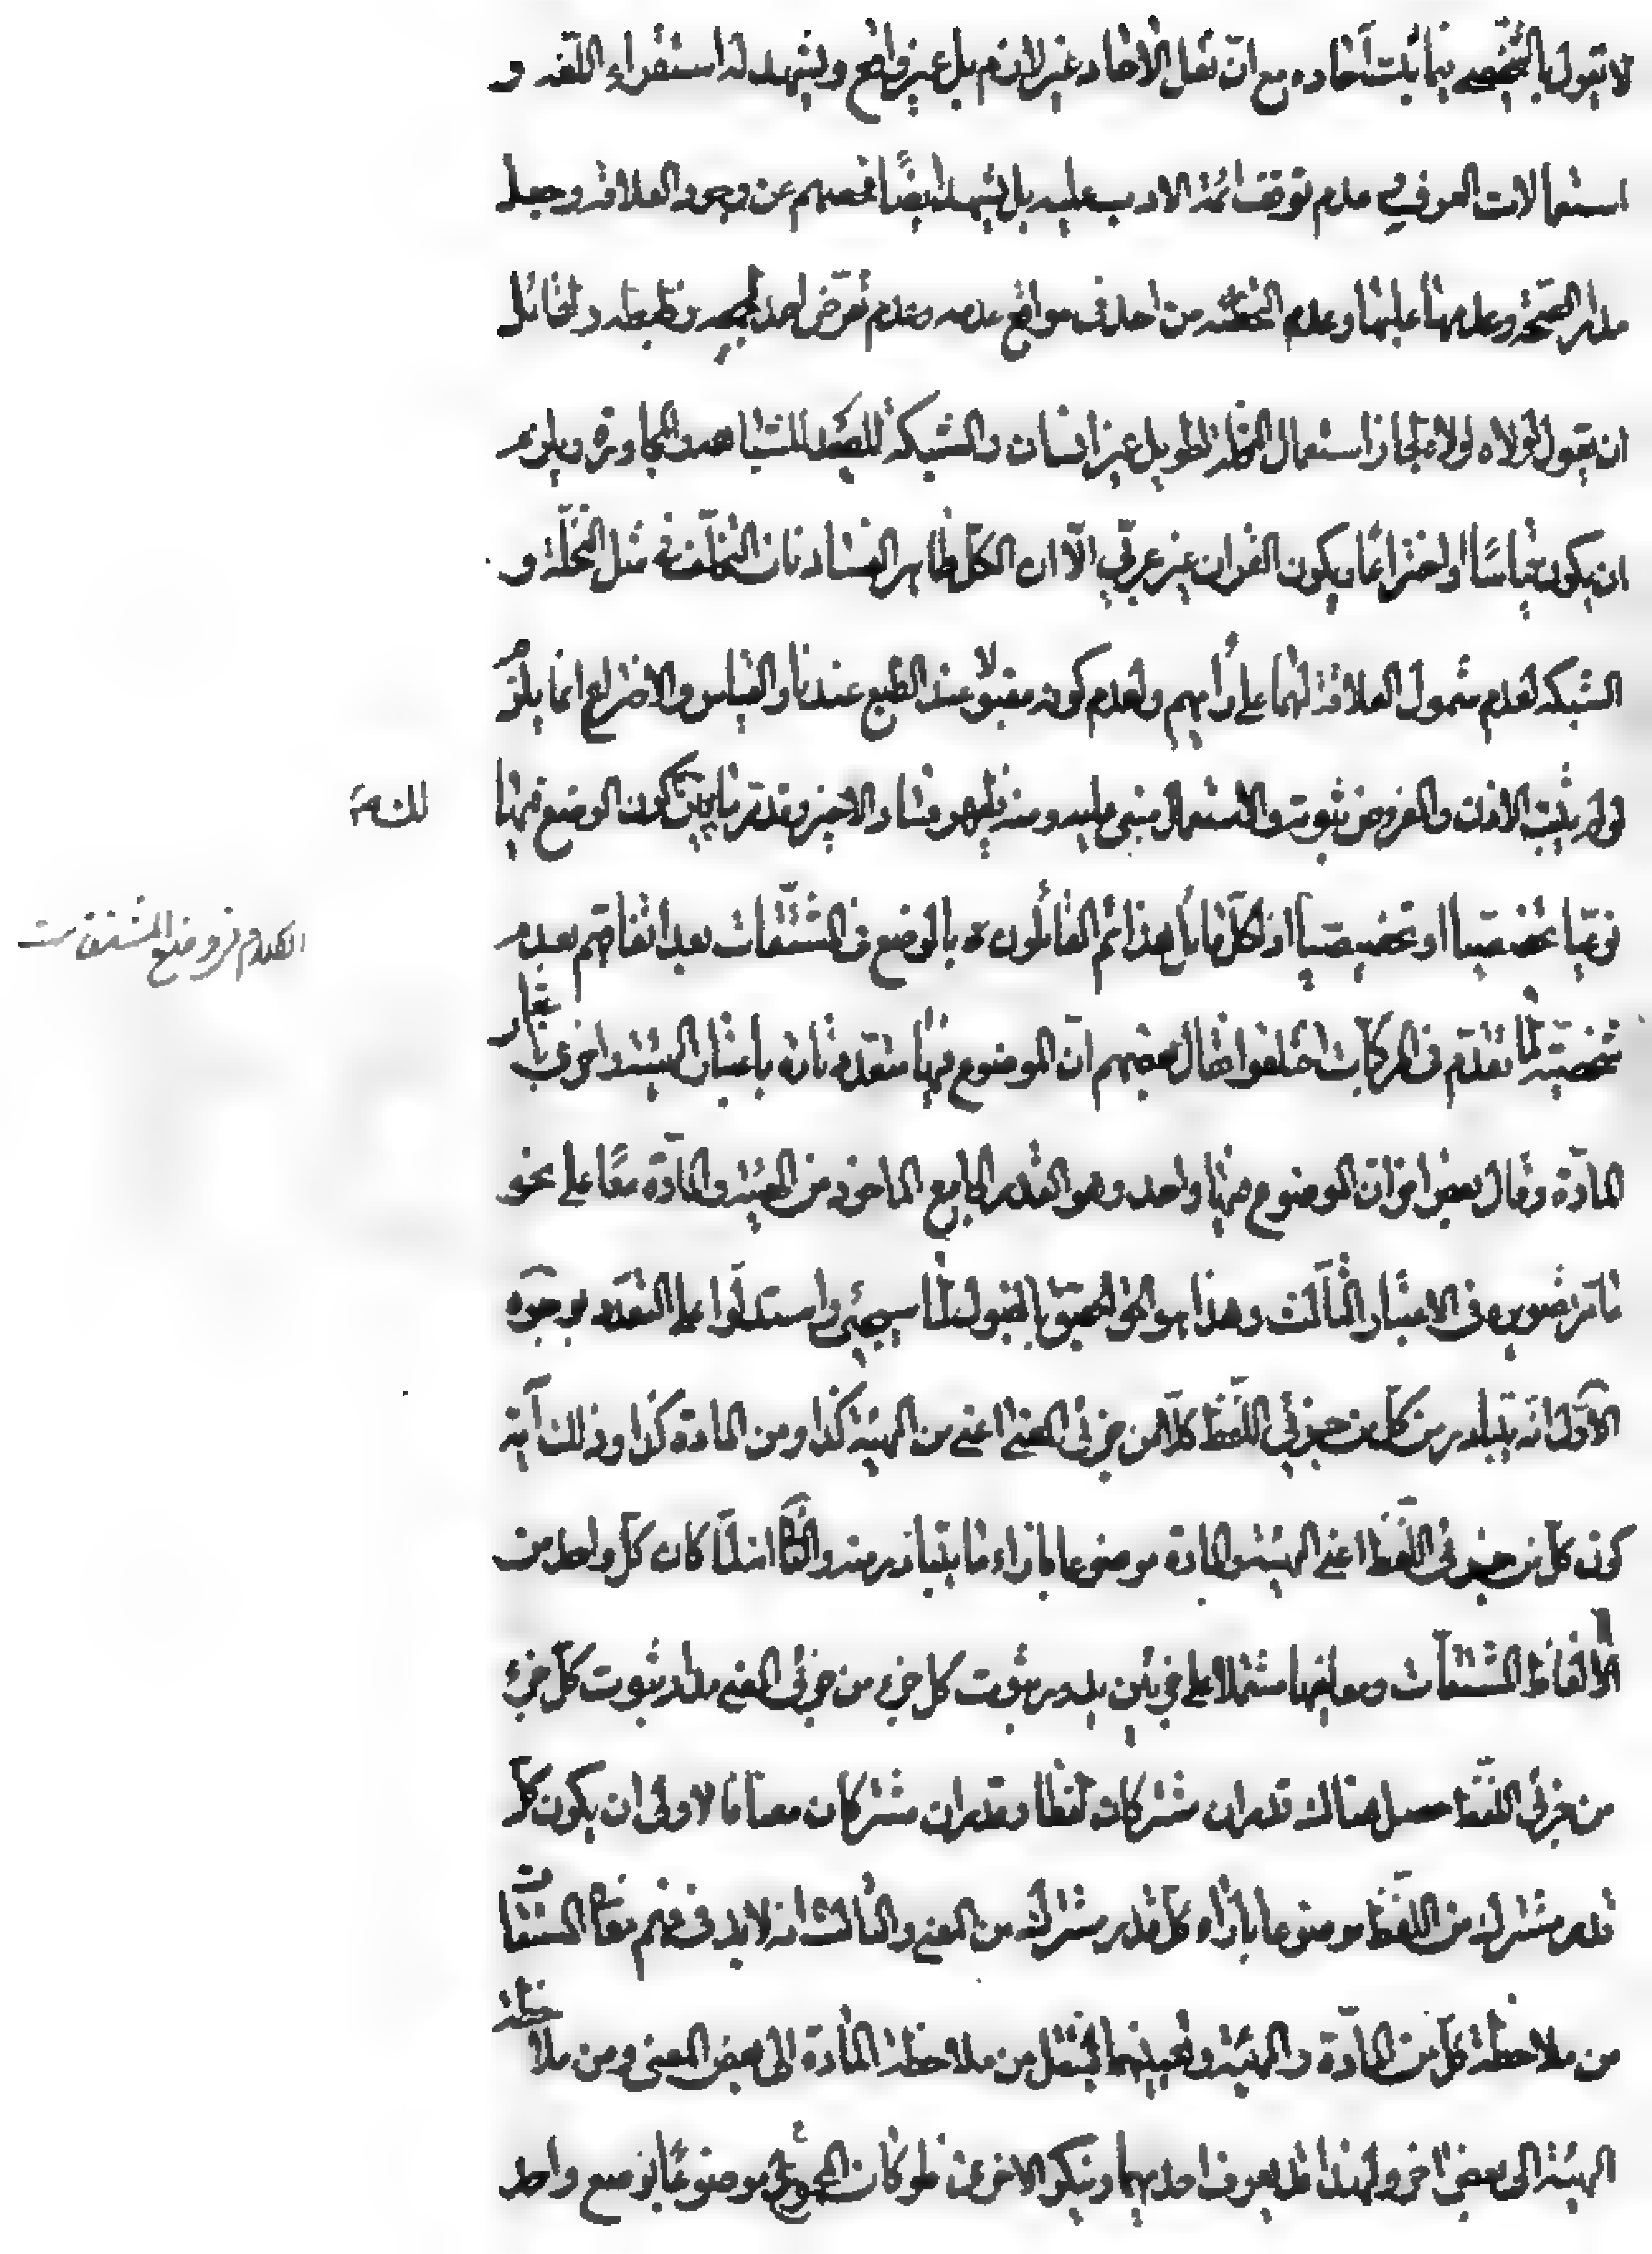 لا يقول بالتخصيص فيما يثبت آحاده مع ان نقل الآحاد غير لازم بل غير واقع ويشهد له استقراء اللغة و
استعمالات العرف و عدم توقف ائمة الادب عليه بل يشهد ايضًا فحصهم عن وجود العلاقة وجعل
مدار الصحة وعدمها عليها وعدم التخطئه من احد في مواقع عدمه وعدم تعرض احد لجمعه وضبطه ولقائل
ان يقول لولاه لجاز استعمال النخلة لطويل غير انسان والشبكة للصيد للمجاورة ويلزم
ان يكون قياسًا او اختراعًا ويكون القرآن غير عربي الّا ان الكل ظاهر الفساد فان التخلف في مثل النخلة و
الشبكه لعدم شمول العلاقة لهما على رأيهم ولعدم كونه مقبولا عند الطبع عندنا والقياس والاختراع انما يلزم
لو لم يثبت الاذن والفروض ثبوته والاستعمال مبنى عليه ومنه يظهر فساد الاخير وقد تم ما يبين كون الوضع فيها
نوعيا تخصصيا او تخصيصيا اذ الكل هذا ثم القائلون بالوضع في المشتقات بعد اتفاقهم بعدم
الكلام فى وضع المشتقات
شخصيته لما تقدم في المركبات اختلفوا فقال بعضهم ان الموضوع فيها متعدد تارة باعتبار الهيئة واخرى باعتبار
المادّة وقال بعض اخر ان الموضوع فيها واحد وهو القدر الجامع الماخوذ من الهيئة والمادّة معًا على نحو
ما مر تصويره في الاعتبار الثالث وهذا هو الحق الحقيق بالقبول لما سيجئ واستدلوا على التعدد بوجوه
الاول انه يتبادر من كل من جزئي اللفظ كل من جزئي المعنى اعني من الهيئة كذا ومن المادة كذا وذلك آية
كون كل من جزئي اللفظ اعني الهيئة والمادة موضوعا بازاء ما يتبادر منه والثاني انه لما كان كل واحد من
الالفاظ المشتقات ومعانيها مشتملا على جزئين يدور ثبوت كل جزء من جزئي المعنى مدار ثبوت كل جزء
من جزئي اللفظ حصل هناك قدران مشتركان لفظا وقدران مشتركان معنا فالاولى ان يكون كل
قدر مشترك من اللفظ موضوعا بازاء كل قدر مشترك من المعنى والثالث انه لابد في فهم معنى المشتقات
من ملاحظة كل من المادّة والهيئة وتعيينهما لينتقل من ملاحظة المادة الى بعض المعنى ومن ملاحظة
الهيئة الى بعض اخر ولهذا قد يعرف احديهما وينكر الاخرى فلو كان المجموع موضوعًا بوضع واحد